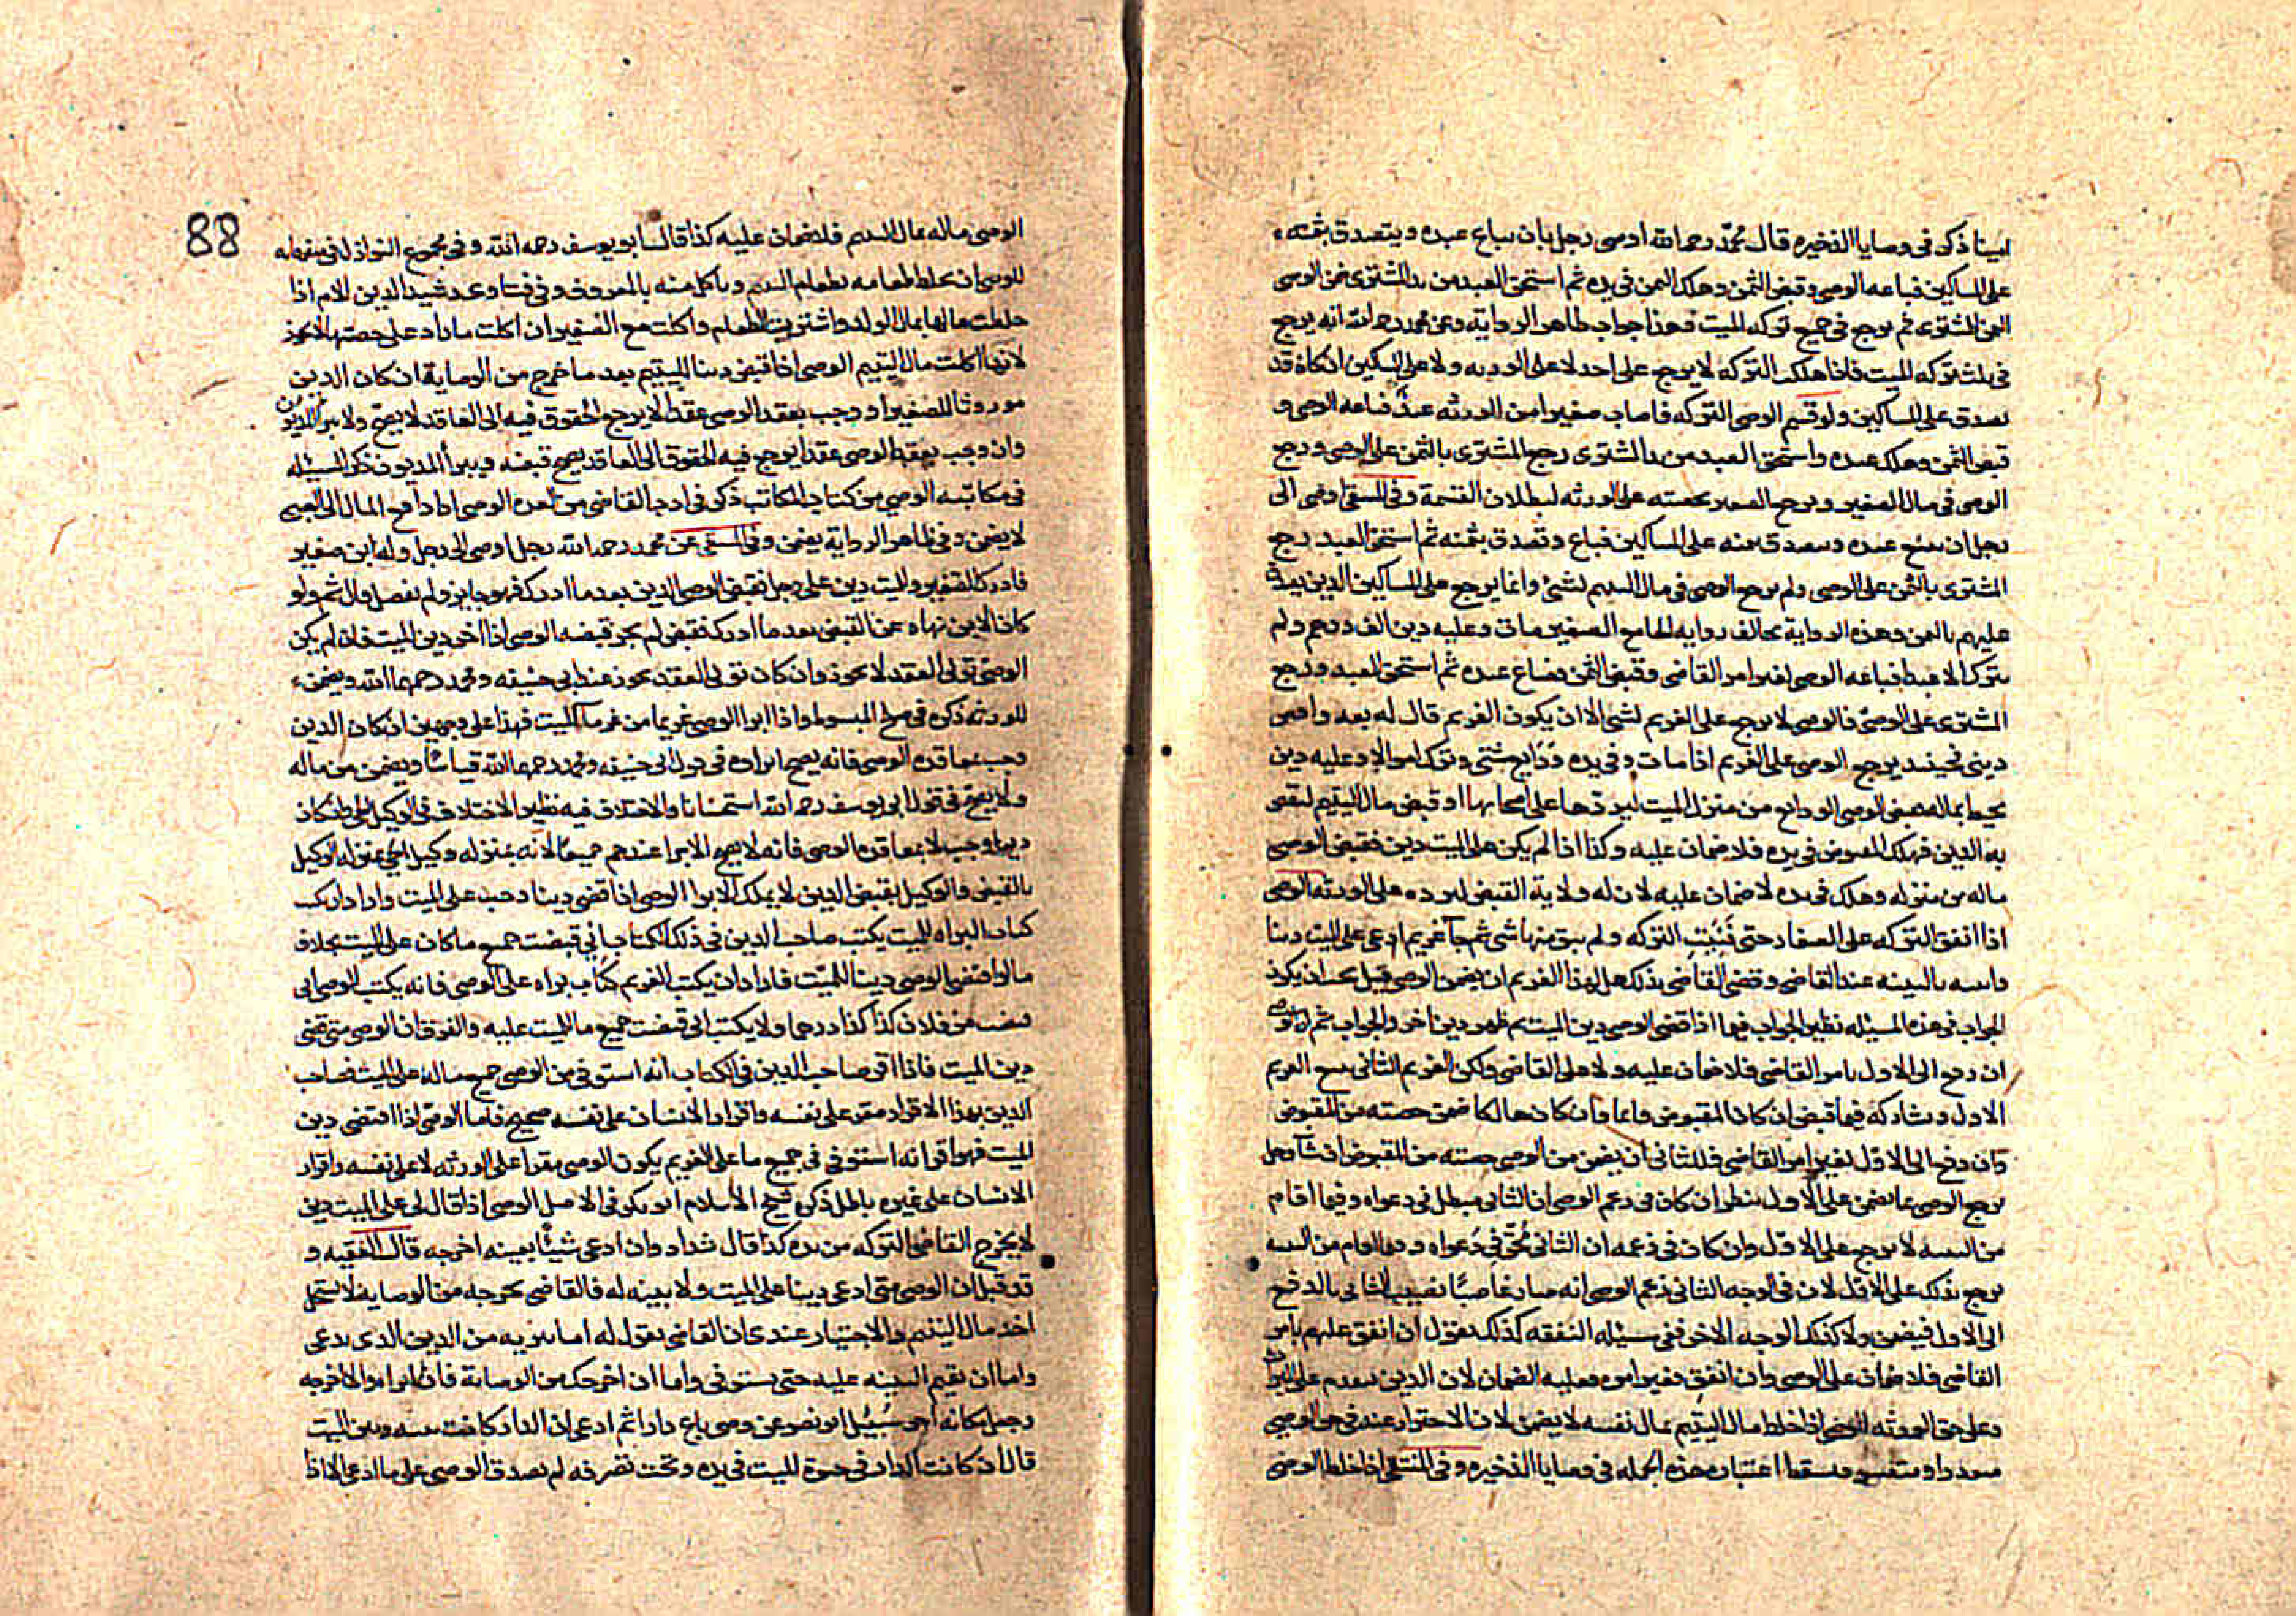 امينا ذكره في وصايا الذخيره قال محمد رحمه الله اوصى رجل بان يباع عبده ويتصدق بثمنه
على المساكين فباعه الوصي وقبض الثمن وهلك الثمن في يده ثم استحق العبد من يد المشتري ضمن الوصي
الثمن للمشتري ثم يرجع في جميع تركه الميت فهذا جواب ظاهر الروايه وعن محمد رحمه الله انه يرجع
في ثلث تركه الميت فاذا هلكت التركه لا يرجع على احد لا على الورثه ولا على المساكين ان كان قد
تصدق على المساكين ولو قسم الوصي التركه فاصاب صغيرا من الورثه عبد فباعه الوصي و
قبض الثمن وهلك عنده واستحق العبد من يد المشتري رجع المشتري بالثمن على الوصي ورجع
الوصي في مال الصغير ويرجع الصغير بحصته على الورثه لبطلان القسمة وفي المنتقى اوصى الى
رجل ان يبيع عبده ويتصدق بثمنه على المساكين فباع وتصدق بثمنه ثم استحق العبد رجع
المشتري بالثمن على الوصي ولم يرجع الوصي في مال اليتيم بشئ وانما يرجع على المساكين الذين تصدق
عليهم بالثمن وهذه الرواية تخالف روايه الجامع الصغير مات وعليه دين الف درهم ولم
يترك الا عبدا فباعه الوصي بغير امر القاضي وقبض الثمن وضاع عنده ثم استحق العبد ورجع
المشتري على الوصي فالوصي لا يرجع على الغريم بشئ الا ان يكون الغريم قال له بعه واقض
ديني فحينئذ يرجع الوصي على الغريم اذا مات وفي يده ودايع شتى وترك اموالا وعليه دين
يحيط بماله فقبض الوصي الودايع من منزل الميت ليردها على اصحابها او قبض مال اليتيم ليقضي
به الدين فهلك المقبوض في يده فلا ضمان عليه وكذا اذا لم يكن على الميت دين فقبض الوصي
ماله من منزله وهلك في يده لا ضمان عليه لان له ولاية القبض ليرده على الورثه الوصي
اذا انفق التركه على الصغار حتى فنيت التركه ولم يبق منها شئ ثم جاء غريم ادعى على الميت دينا
واثبته بالبينه عند القاضي وقضى القاضي بذلك هل لهذا الغريم ان يضمن الوصي قيل يجب ان يكون
الجواب في هذه المسئله نظير الجواب فيما اذا قضى الوصي دين الميت ثم ظهر دين اخر والجواب ثم ان الوصي
ان دفع الى الاول بامر القاضي فلا ضمان عليه ولا على القاضي ولكن الغريم الثاني يتبع الغريم
الاول ويشاركه فيما قبض ان كان المقبوض قائما وان كان هالكا ضمن حصته من المقبوض
وان دفع الى الاول بغير امر القاضي فللثاني ان يضمن من الوصي حصته من المقبوض ان شاء وهل
يرجع الوصي بما ضمن على الاول ينظر ان كان في زعم الوصي ان الثاني مبطل في دعواه وفيما اقام
من البينه لا يرجع على الاول وان كان في زعمه ان الثاني محق في دعواه وفيما اقام من البينه
يرجع بذلك على الاول لان في الوجه الثاني زعم الوصي انه صار غاصبا نصيب الثاني بالدفع
الى الاول فيضمن ولا كذلك الوجه الاخر ففي مسئله النفقه كذلك نقول ان انفق عليهم بامر
القاضي فلا ضمان على الوصي وان انفق بغير امره فعليه الضمان لان الدين مقدم على الميراث
وعلى حق الورثه الوصي اذا خلط مال اليتيم بمال نفسه لا يضمن لان الاحتراز عنه في حق الوصي
متعذر او متعسر فسقط اعتباره هذه الجمله في وصايا الذخيره وفي المنتقى اذا خلط الوصي
88
الوصي ماله بمال اليتيم فلا ضمان عليه كذا قال ابو يوسف رحمه الله وفي مجموع النوازل
للوصي ان يخلط طعامه بطعام اليتيم وياكل منه بالمعروف وفي فتاوى رشيد الدين الام اذا
خلطت مالها بمال الولد واشترت الطعام واكلت مع الصغير ان اكلت ما زاد على حصتها لا يجوز
لانها اكلت مال اليتيم الوصي اذا قبض دينا لليتيم بعد ما خرج من الوصاية ان كان الدين
موروثا للصغير او وجب بعقد الوصي عقدا لا يرجع الحقوق فيه الى العاقد لا يصح ولا يبرأ المديون
وان وجب بعقد الوصي عقدا يرجع فيه الحقوق الى العاقد يصح قبضه ويبرأ المديون ذكر المسئله
في مكاتبه الوصي من كتاب المكاتب ذكر في ادب القاضي من الوصي اذا دفع المال الى الصبي
لا يضمن وفي ظاهر الرواية يضمن وفي المنتقى عن محمد رحمه الله رجل اوصى الى رجل وله ابن صغير
فادرك الصغير وللميت دين على رجل فقبض الوصي الدين بعد ما ادرك فهو جايز ولم يفصل وقال ثم ولو
كان الابن نهاه عن القبض بعد ما ادرك فقبض لم يجز قبضه الوصي اذا اخر دين الميت فان لم يكن
الوصي تولى العقد لا يجوز وان كان تولى العقد يجوز عند ابي حنيفه ومحمد رحمهما الله ويضمن
للورثه ذكره في صلح المبسوط واذا ابرا الوصي غريما من غرماء الميت فهذا على وجهين ان كان الدين
وجب بمعاقده الوصي فانه يصح ابراءه في قول ابي حنيفه ومحمد رحمهما الله قياسا ويضمن من ماله
ولا يصح في قول ابي يوسف رحمه الله استحسانا والاختلاف فيه نظير الاختلاف في الوكيل الحي وان كان
دينا وجب لا بمعاقده الوصي فانه لا يصح الابرا عندهم جميعا لانه بمنزله وكيل الحي بمنزله الوكيل
بالقبض والوكيل بقبض الدين لا يملك الابرا الوصي اذا قضى دينا وجب على الميت واراد ان يكتب
كتاب البراه للميت يكتب صاحب الدين في ذلك الكتاب اني قبضت جميع ما كان على الميت بخلاف
ما لو اقتضى الوصي دينا للميت فاراد ان يكتب الغريم كتاب براه على الوصي فانه يكتب الوصي اني
قبضت من فلان كذا كذا درهما ولا يكتب اني قبضت جميع ما للميت عليه والفرق ان الوصي متى قضى
دين الميت فاذا اقر صاحب الدين في الكتاب انه استوفى من الوصي جميع ماله على الميت فصاحب
الدين بهذا الاقرار مقر على نفسه واقرار الانسان على نفسه صحيح فاما الوصي اذا اقتضى دين
الميت فهو اقر انه استوفى جميع ما على الغريم يكون الوصي مقرا على الورثه لا على نفسه واقرار
الانسان على غيره باطل ذكره شيخ الاسلام ابو بكر في الاصل الوصي اذا قال لي على الميت دين
لا يخرج القاضي التركه من يده كذا قال شداد وان ادعى شيئا بعينه اخرجه قال الفقيه و
قد قيل ان الوصي متى ادعى دينا على الميت ولا بينه له فالقاضي يخرجه من الوصايه لانه يستحل
اخذ مال اليتيم والاختيار عندي ان القاضي يقول له اما ان تبريه من الدين الذي يدعي
واما ان تقيم البينه عليه حتى يستوفى واما ان اخرجك من الوصاية فان ابراه والا اخرجه
وجعل مكانه اخر سئل ابو نصر عن وصي باع دارا ثم ادعى ان الدار كانت بينه وبين الميت
قال ان كانت الدار في حيوة الميت في يده وتحت تصرفه لم يصدق الوصي على ما ادعى الا اذا